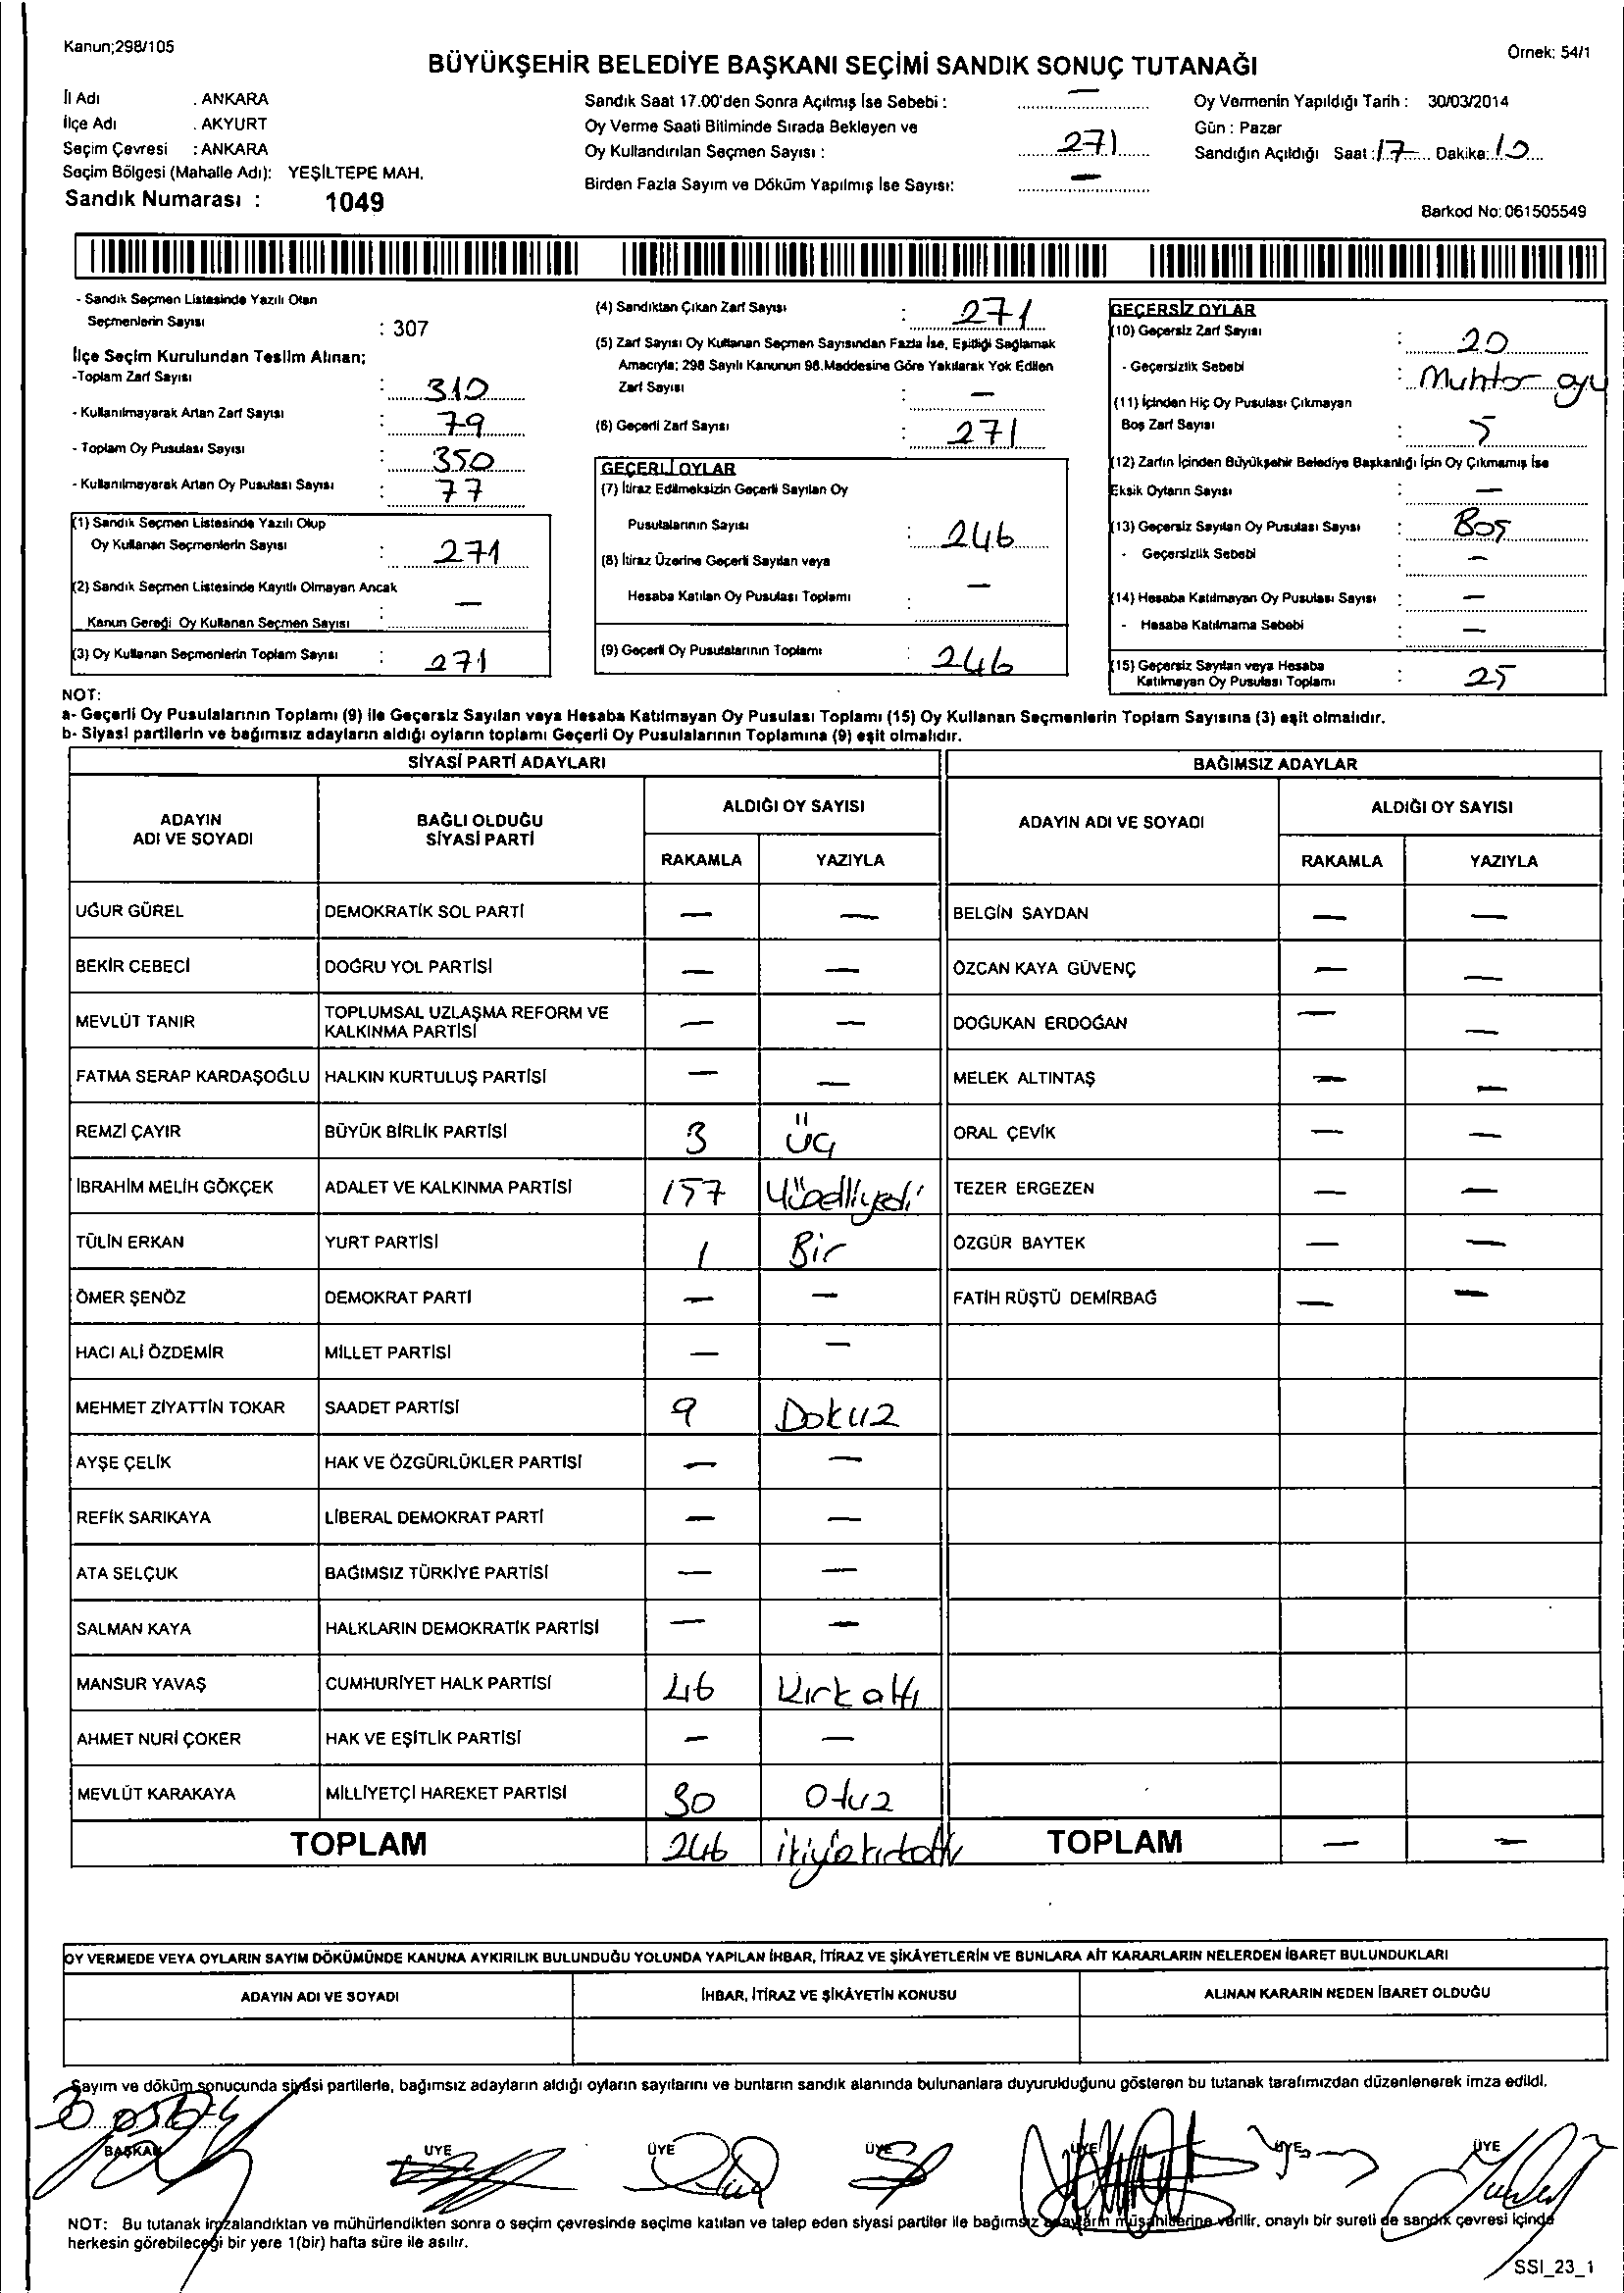 Kanun;298/105
Örnek: 54/1
BÜYÜKŞEHİR BELEDİYE BAŞKANI SEÇİMİ SANDIK SONUÇ TUTANAĞI
İl Adı : ANKARA
İlçe Adı : AKYURT
Seçim Çevresi : ANKARA
Seçim Bölgesi (Mahalle Adı): YEŞİLTEPE MAH.
Sandık Numarası : 1049
Sandık Saat 17.00'den Sonra Açılmış İse Sebebi : —
Oy Verme Saati Bitiminde Sırada Bekleyen ve
Oy Kullandırılan Seçmen Sayısı : 271
Birden Fazla Sayım ve Döküm Yapılmış İse Sayısı: —
Oy Vermenin Yapıldığı Tarih : 30/03/2014
Gün : Pazar
Sandığın Açıldığı Saat : 17 Dakika: 10
Barkod No: 061505549
- Sandık Seçmen Listesinde Yazılı Olan
Seçmenlerin Sayısı : 307
İlçe Seçim Kurulundan Teslim Alınan;
-Toplam Zarf Sayısı : 310
- Kullanılmayarak Artan Zarf Sayısı : 79
- Toplam Oy Pusulası Sayısı : 350
- Kullanılmayarak Artan Oy Pusulası Sayısı : 77
(1) Sandık Seçmen Listesinde Yazılı Olup
Oy Kullanan Seçmenlerin Sayısı : 271
(2) Sandık Seçmen Listesinde Kayıtlı Olmayan Ancak
Kanun Gereği Oy Kullanan Seçmen Sayısı : —
(3) Oy Kullanan Seçmenlerin Toplam Sayısı : 271
(4) Sandıktan Çıkan Zarf Sayısı : 271
(5) Zarf Sayısı Oy Kullanan Seçmen Sayısından Fazla İse, Eşitliği Sağlamak
Amacıyla; 298 Sayılı Kanunun 98.Maddesine Göre Yakılarak Yok Edilen
Zarf Sayısı : —
(6) Geçerli Zarf Sayısı : 271
GEÇERLİ OYLAR
(7) İtiraz Edilmeksizin Geçerli Sayılan Oy
Pusulalarının Sayısı : 246
(8) İtiraz Üzerine Geçerli Sayılan veya
Hesaba Katılan Oy Pusulası Toplamı : —
(9) Geçerli Oy Pusulalarının Toplamı : 246
GEÇERSİZ OYLAR
(10) Geçersiz Zarf Sayısı : 20
- Geçersizlik Sebebi : Muhtar oyu
(11) İçinden Hiç Oy Pusulası Çıkmayan
Boş Zarf Sayısı : 5
(12) Zarfın İçinden Büyükşehir Belediye Başkanlığı İçin Oy Çıkmamış İse
Eksik Oyların Sayısı : —
(13) Geçersiz Sayılan Oy Pusulası Sayısı : Boş
- Geçersizlik Sebebi : —
(14) Hesaba Katılmayan Oy Pusulası Sayısı : —
- Hesaba Katılmama Sebebi : —
(15) Geçersiz Sayılan veya Hesaba
Katılmayan Oy Pusulası Toplamı : 25
NOT:
a- Geçerli Oy Pusulalarının Toplamı (9) ile Geçersiz Sayılan veya Hesaba Katılmayan Oy Pusulası Toplamı (15) Oy Kullanan Seçmenlerin Toplam Sayısına (3) eşit olmalıdır.
b- Siyasi partilerin ve bağımsız adayların aldığı oyların toplamı Geçerli Oy Pusulalarının Toplamına (9) eşit olmalıdır.
SİYASİ PARTİ ADAYLARI
ADAYIN ADI VE SOYADI
BAĞLI OLDUĞU SİYASİ PARTİ
ALDIĞI OY SAYISI
RAKAMLA YAZIYLA
BAĞIMSIZ ADAYLAR
ADAYIN ADI VE SOYADI
ALDIĞI OY SAYISI
RAKAMLA YAZIYLA
UĞUR GÜREL DEMOKRATİK SOL PARTİ — — BELGİN SAYDAN — —
BEKİR CEBECİ DOĞRU YOL PARTİSİ — — ÖZCAN KAYA GÜVENÇ — —
MEVLÜT TANIR TOPLUMSAL UZLAŞMA REFORM VE KALKINMA PARTİSİ — — DOĞUKAN ERDOĞAN — —
FATMA SERAP KARDAŞOĞLU HALKIN KURTULUŞ PARTİSİ — — MELEK ALTINTAŞ — —
REMZİ ÇAYIR BÜYÜK BİRLİK PARTİSİ 3 üç ORAL ÇEVİK — —
İBRAHİM MELİH GÖKÇEK ADALET VE KALKINMA PARTİSİ 157 Yüzelliyedi TEZER ERGEZEN — —
TÜLİN ERKAN YURT PARTİSİ 1 Bir ÖZGÜR BAYTEK — —
ÖMER ŞENÖZ DEMOKRAT PARTİ — — FATİH RÜŞTÜ DEMİRBAĞ — —
HACI ALİ ÖZDEMİR MİLLET PARTİSİ — —
MEHMET ZİYATTİN TOKAR SAADET PARTİSİ 9 Dokuz
AYŞE ÇELİK HAK VE ÖZGÜRLÜKLER PARTİSİ — —
REFİK SARIKAYA LİBERAL DEMOKRAT PARTİ — —
ATA SELÇUK BAĞIMSIZ TÜRKİYE PARTİSİ — —
SALMAN KAYA HALKLARIN DEMOKRATİK PARTİSİ — —
MANSUR YAVAŞ CUMHURİYET HALK PARTİSİ 46 Kırkaltı
AHMET NURİ ÇOKER HAK VE EŞİTLİK PARTİSİ — —
MEVLÜT KARAKAYA MİLLİYETÇİ HAREKET PARTİSİ 30 Otuz
TOPLAM 246 ikiyüzkırkaltı TOPLAM — —
OY VERMEDE VEYA OYLARIN SAYIM DÖKÜMÜNDE KANUNA AYKIRILIK BULUNDUĞU YOLUNDA YAPILAN İHBAR, İTİRAZ VE ŞİKÂYETLERİN VE BUNLARA AİT KARARLARIN NELERDEN İBARET BULUNDUKLARI
ADAYIN ADI VE SOYADI İHBAR, İTİRAZ VE ŞİKÂYETİN KONUSU ALINAN KARARIN NEDEN İBARET OLDUĞU
Sayım ve döküm sonucunda siyasi partilerle, bağımsız adayların aldığı oyların sayılarını ve bunların sandık alanında bulunanlara duyurulduğunu gösteren bu tutanak tarafımızdan düzenlenerek imza edildi.
BAŞKAN ÜYE ÜYE ÜYE ÜYE ÜYE ÜYE
NOT: Bu tutanak imzalandıktan ve mühürlendikten sonra o seçim çevresinde seçime katılan ve talep eden siyasi partiler ile bağımsız adayların müşahitlerine verilir, onaylı bir sureti de sandık çevresi içinde
herkesin görebileceği bir yere 1(bir) hafta süre ile asılır.
SSI_23_1